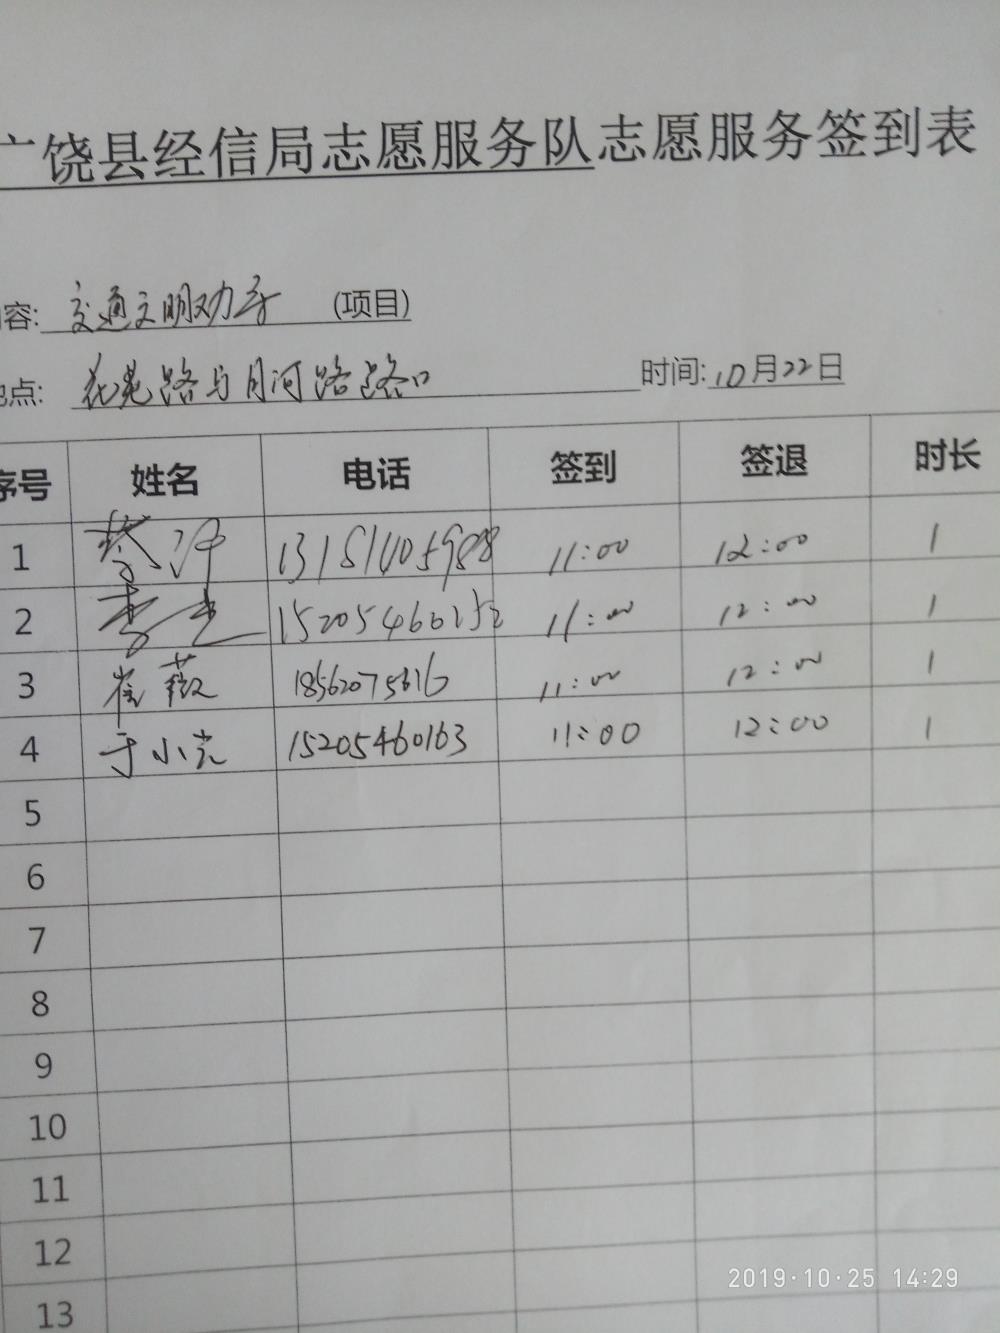 广饶县经信局志愿服务队志愿服务签到表
容: 交通文明劝导 (项目)
地点: 花苑路与月河路路口 时间: 10月22日
序号 姓名 电话 签到 签退 时长
1 13181405988 11:00 12:00 1
2 李 15205460152 11:00 12:00 1
3 崔薇 18562075616 11:00 12:00 1
4 于小 15205460163 11:00 12:00 1
5
6
7
8
9
10
11
12
13
2019·10·25 14:29